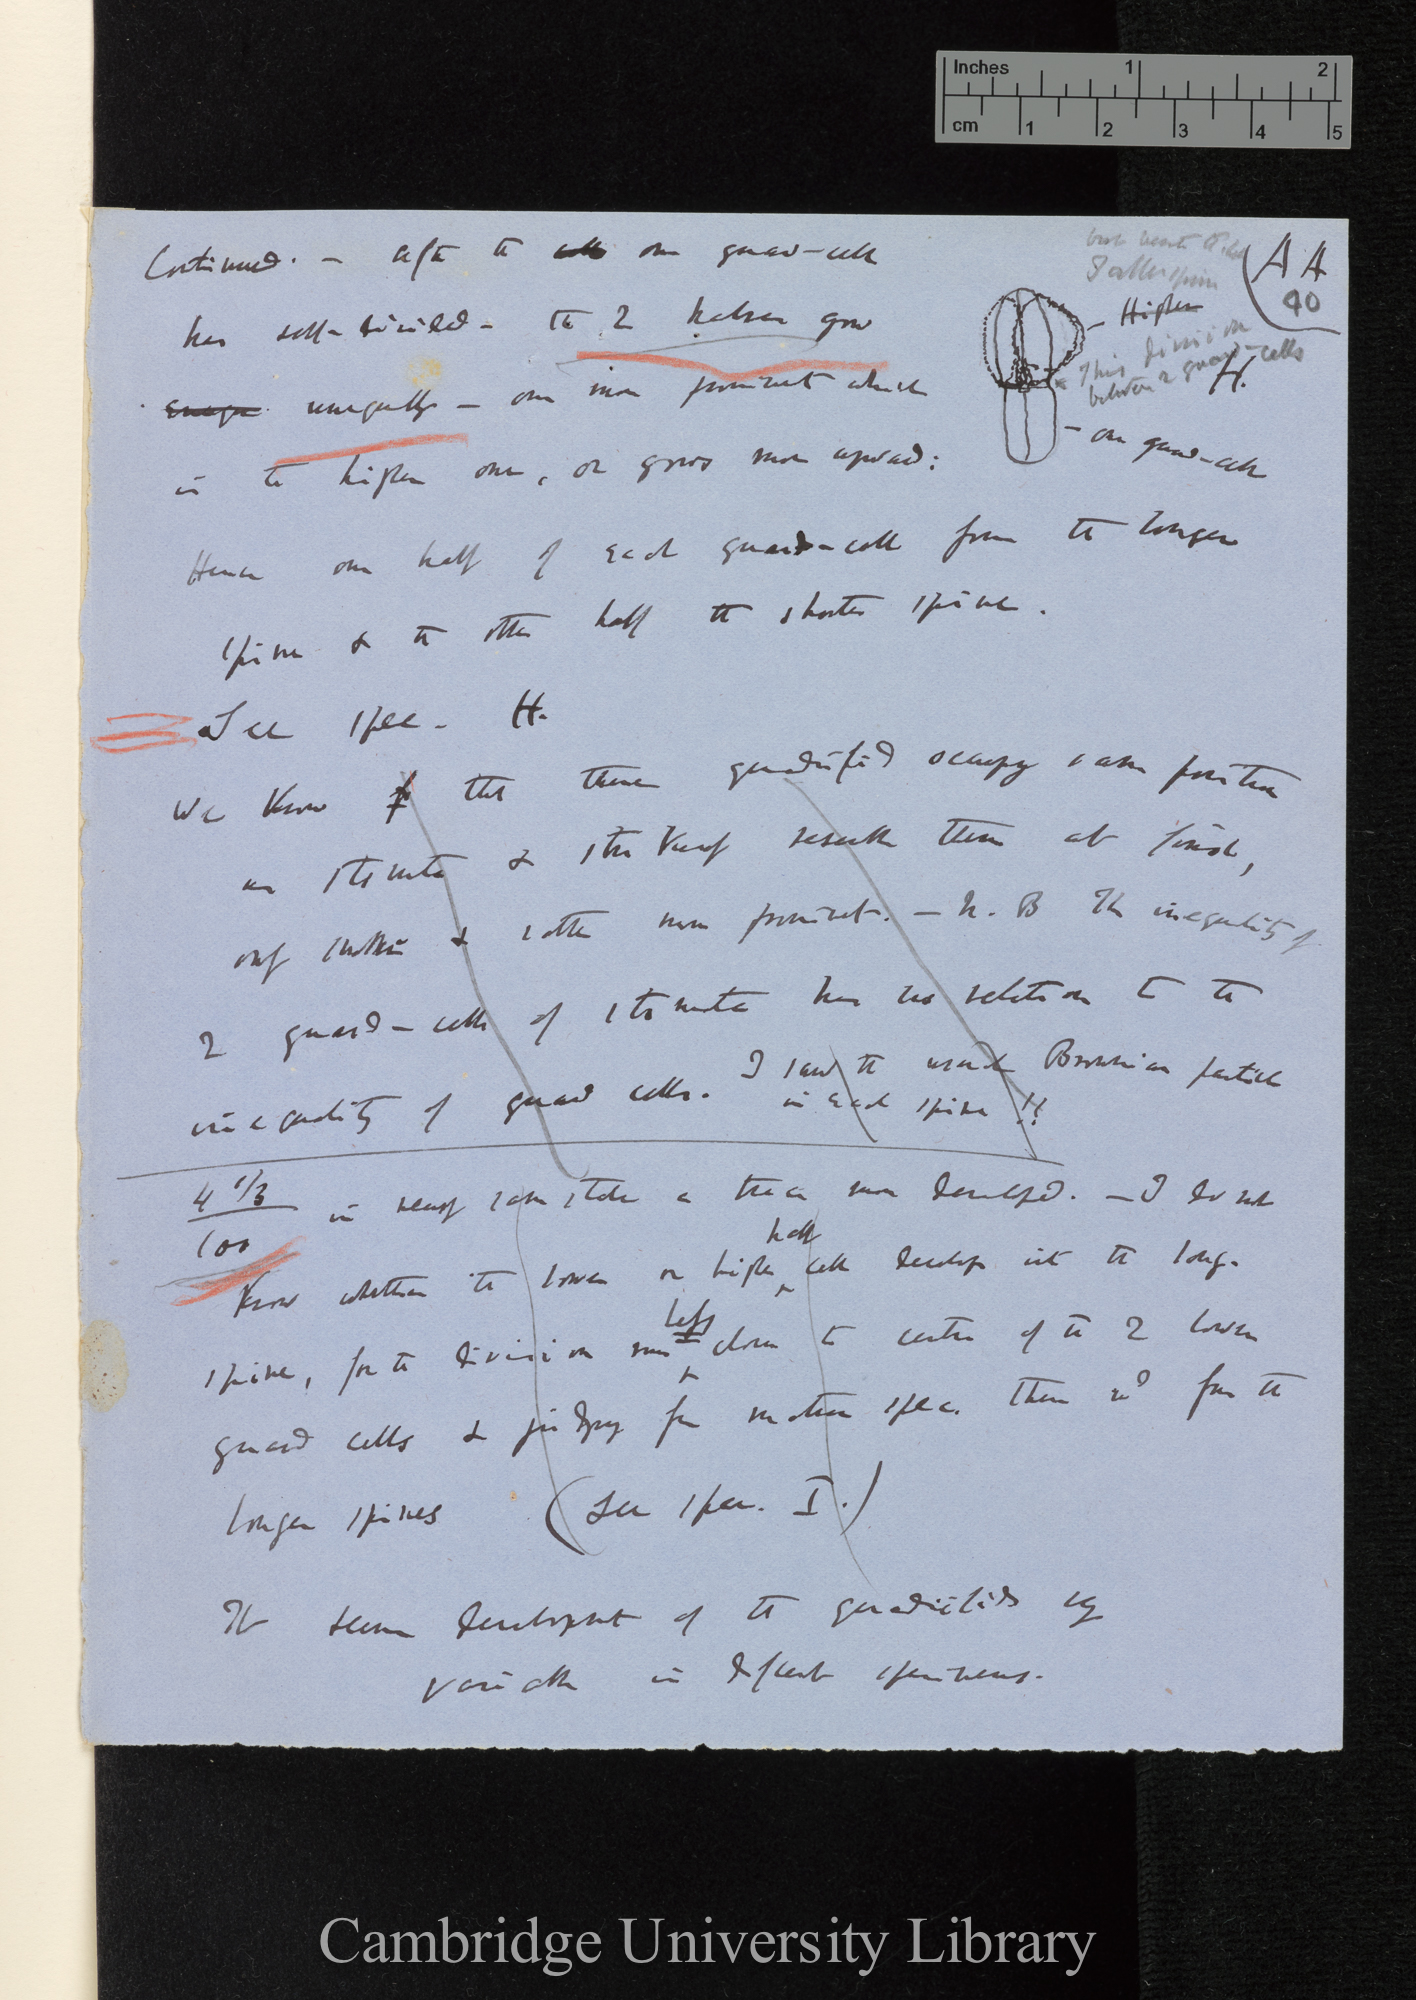 Inches 1 2
cm 1 2 3 4 5
A A
40
Continued. — after the cells one guard-cell
has self-divided — the 2 halves grow
unequally — one more prominent which
is the higher one, or grows more upward:
Higher
This division
between 2 guard-cells
H.
— one guard-cell
Hence one half of each guard-cell forms the longer
spine & the other half the shorter spine.
See spec. H.
We know that these quadrifid occupy same position
as stomata & strikingly resemble them at finish,
only smaller & rather more prominent. — N.B The inequality of
2 guard-cells of stomata has no relation to the
inequality of guard cells. I saw the usual Brownian particles
in each spine !!
4 1/3
100
in nearly same state a trace more developed. — I do not
know whether the lower or higher half cell develops into the long.
spine, for the division runs left down to centre of the 2 lower
guard cells & judging from another spec. these wd form the
longer spines (See spec. I.)
It seems development of the quadrifids vy
variable in different specimens.
Cambridge University Library